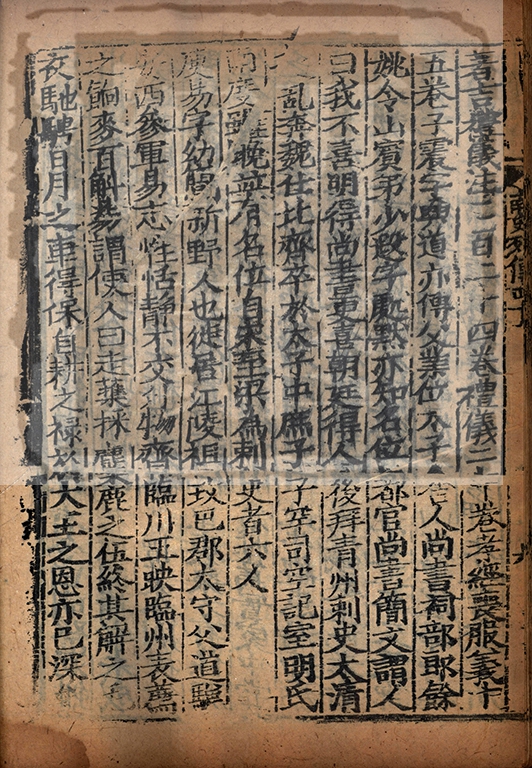 著吉禮儀注二百二十四卷禮儀二十卷孝經喪服義十
五卷子震字興道亦傳父業位太子舍人尚書祠部郎餘
姚令山賓弟少遐字處默亦知名位都官尚書簡文謂人
曰我不喜明得尚書更喜朝廷得人後拜青州刺史太清
之亂奔魏仕北齊卒於太子中庶子子罕司空記室明氏
南度雖晚並有名位自宋至梁為刺史者六人
庾易字幼簡新野人也徙居江陵祖玫巴郡太守父道驥
安西參軍易志性恬靜不交外物齊臨川王映臨州表薦
之餉麥百斛易謂使人曰走樵採麋鹿之伍終其解之毛
衣馳騁日月之車得保自耕之祿於大王之恩亦已深矣